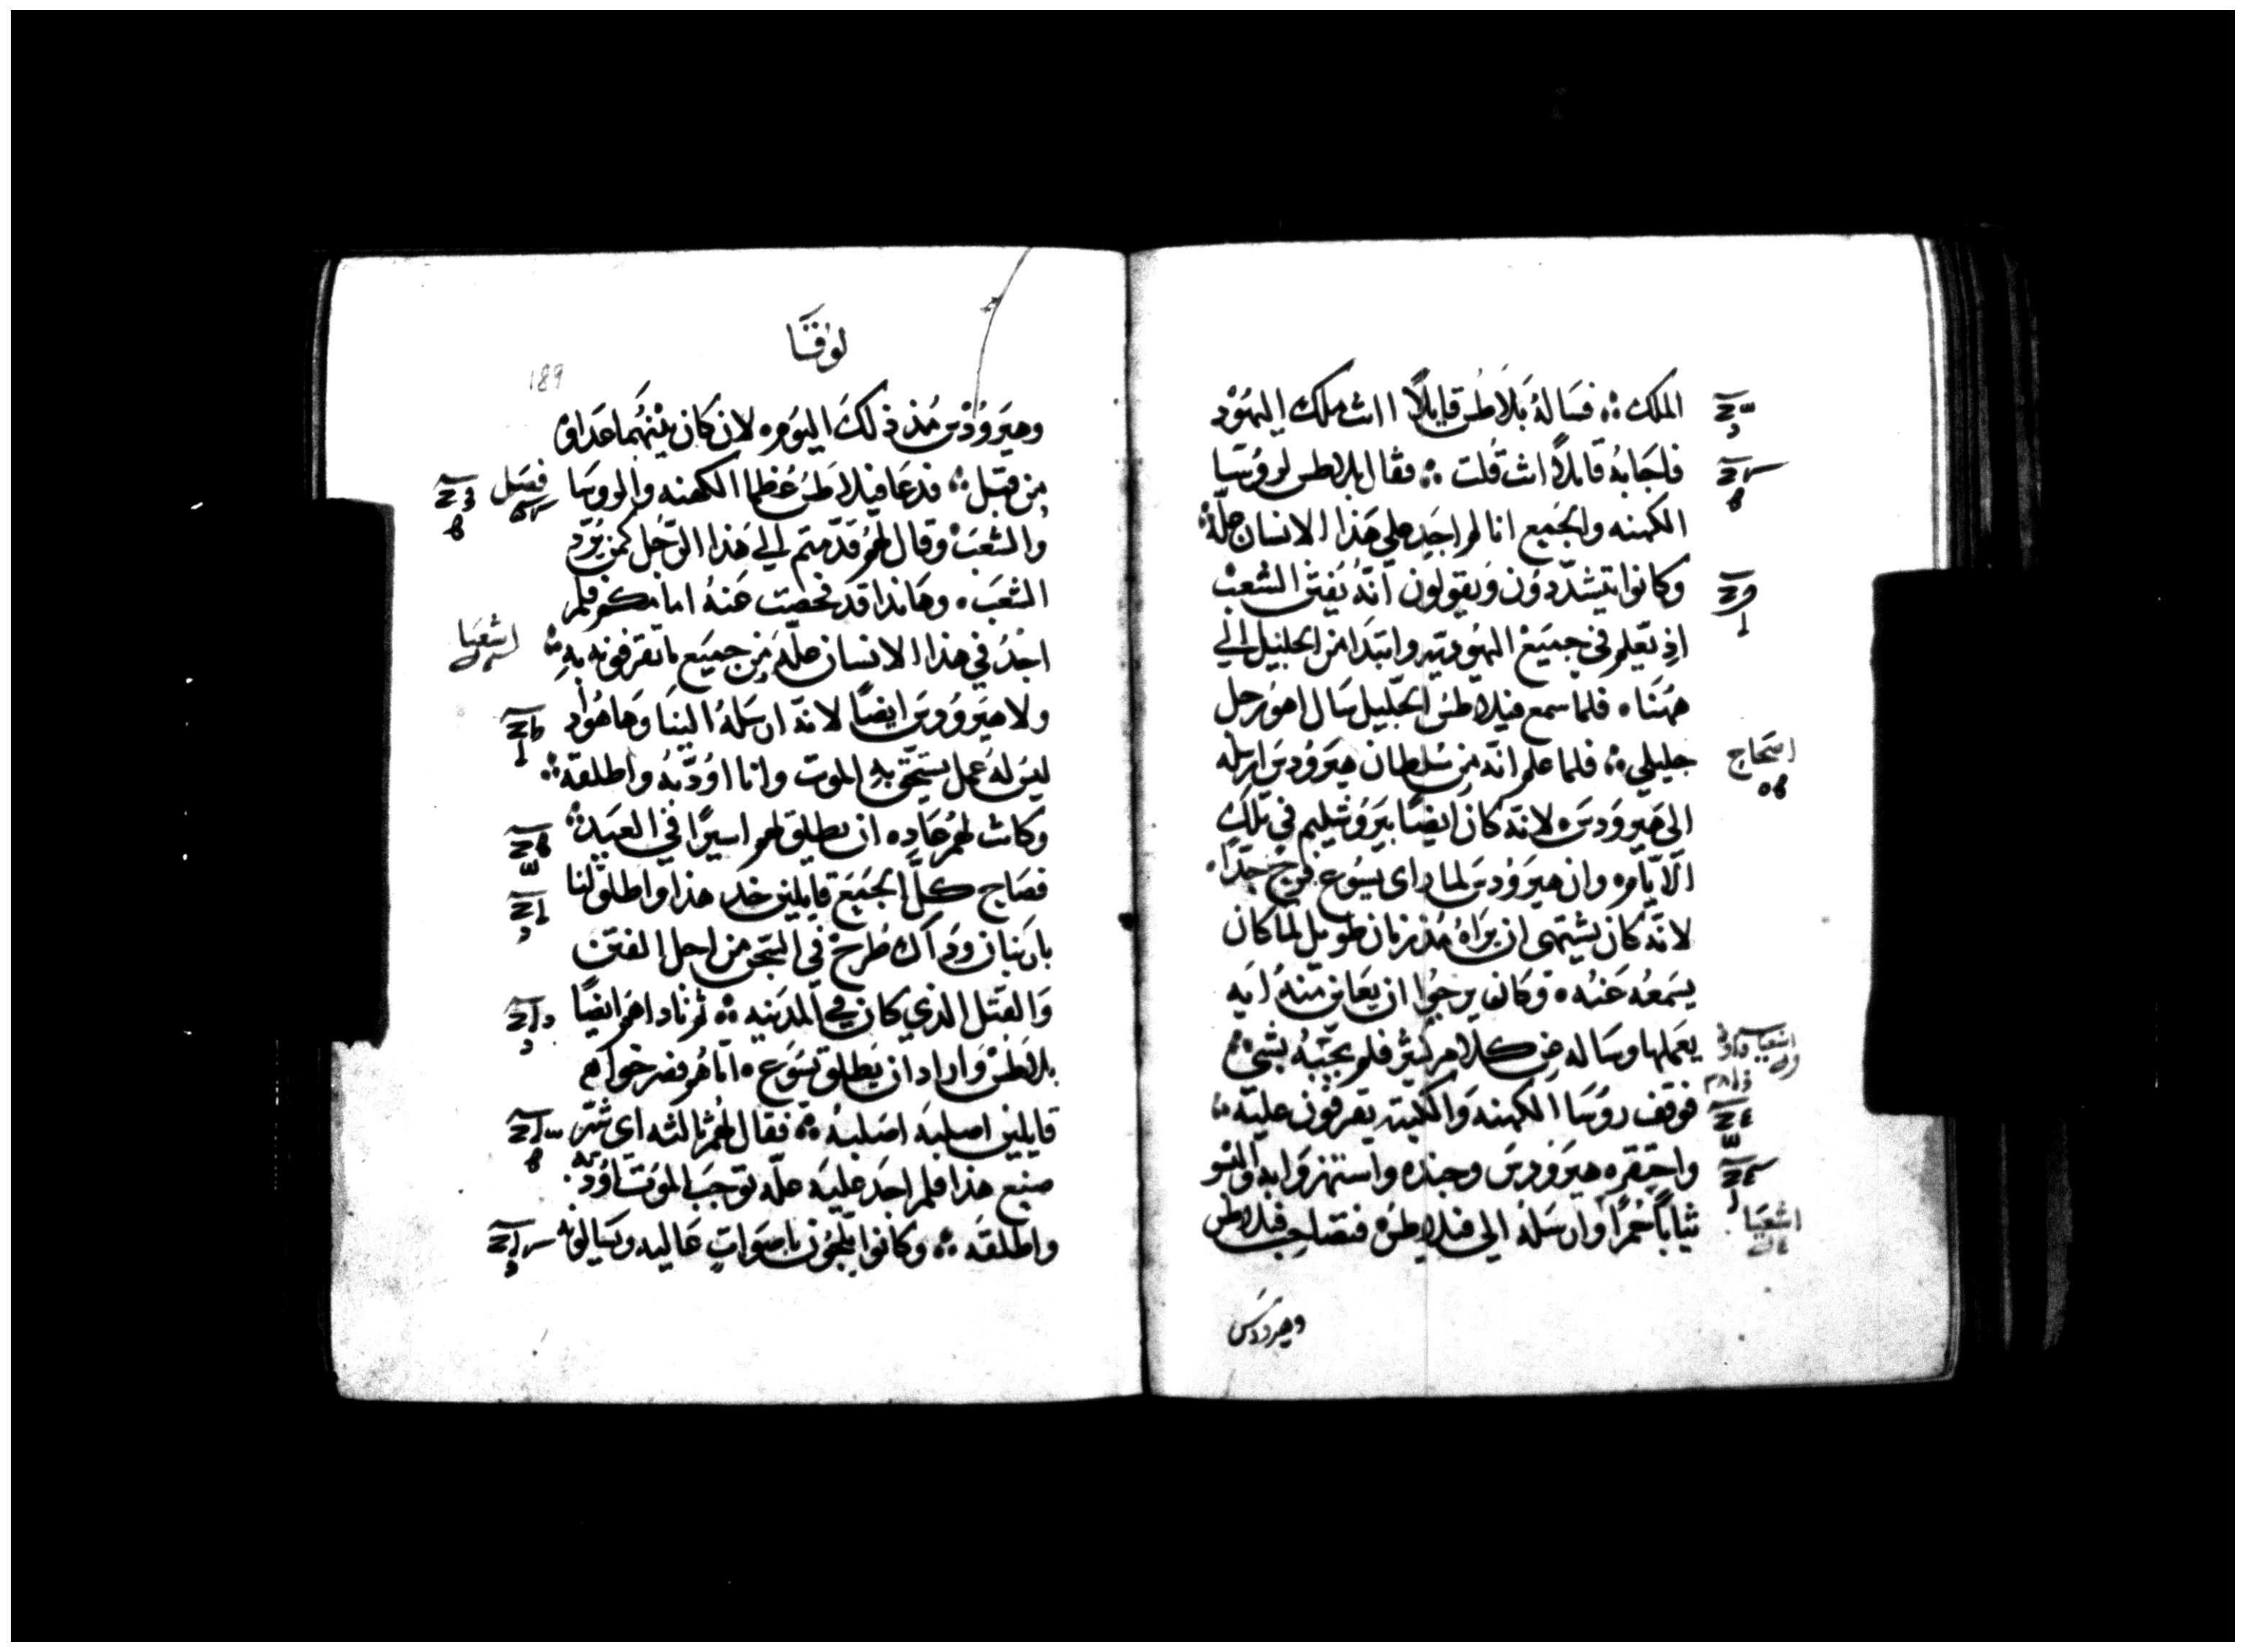 الملك ؞ فساله بلاطس قايلاً اانت ملك اليهود
فاجابه قايلاً انت قلت ؞ فقال بلاطس لروسا
الكهنه والجميع انا لم اجد على هذا الانسان علّة
وكانوا يتشدّدون ويقولون انّه يفتن الشعب
اذ يعلم فى جميع اليهوديه وابتدا من الجليل الي
ههنا ۰ فلما سمع فيلاطس الجليل سال اهو رجل
جليلي ؞ فلما علم انّه من سلطان هيرودس ارسله
الى هيرودس ۰ لانّه كان ايضًا بيروشليم في تلك
الايّام ۰ وان هيرودس لما راى يسوع فرح جدّا ۰
لانّه كان يشتهى ان يراه مذ زمان طويل لما كان
يسمعه عنه ۰ وكان يرجوا ان يعاين منه ايه
يعملها وساله عن كلام كثير فلم يجبه بشي ؞
فوقف روسا الكهنه والكتبه يقرفون عليه ؞
واحتقره هيرودس وجنده واستهزوا به والبسو
ثيابًا حمرًا وارسله الى فيلاطس فتصاحب فيلاطس
وهيرودس
اصحاح
اشعيا
لوقا
189
وهيرودس مذ ذلك اليوم ۰ لان كان بينهما عداوه
من قبل ؞ فدعا فيلاطس عظما الكهنه والروسا
والشعب وقال لهم قدّمتم الي هذا الرجل كمن يردّ
الشعب ۰ وهانذا قد فحصت عنه امامكم فلم
اجد في هذا الانسان علّه من جميع ما تقرفونه به ؞
ولا هيرودس ايضًا لانّه ارسله الينا وها هوذا
ليس له عمل يستحق به الموت وانا اودّبه واطلقه ؞
وكانت لهم عاده ان يطلق لهم اسيرًا في العيد ؞
فصاح كلّ الجميع قايلين خد هذا واطلق لنا
باربنان وداك طرح في السجن من اجل الفتن
والقتل الذي كان في المدينه ؞ ثم ناداهم ايضًا
بلاطس واراد ان يطلق يسوع ۰ امّا هم فصرخوا
قايلين اصلبه اصلبه ؞ فقال لهم ثالثه اى شرّ
صنع هذا فلم اجد عليه علّه توجب الموت اودّبه
واطلقه ؞ وكانوا يلجون باصوات عاليه ويسالونه
فصل
اشعيا